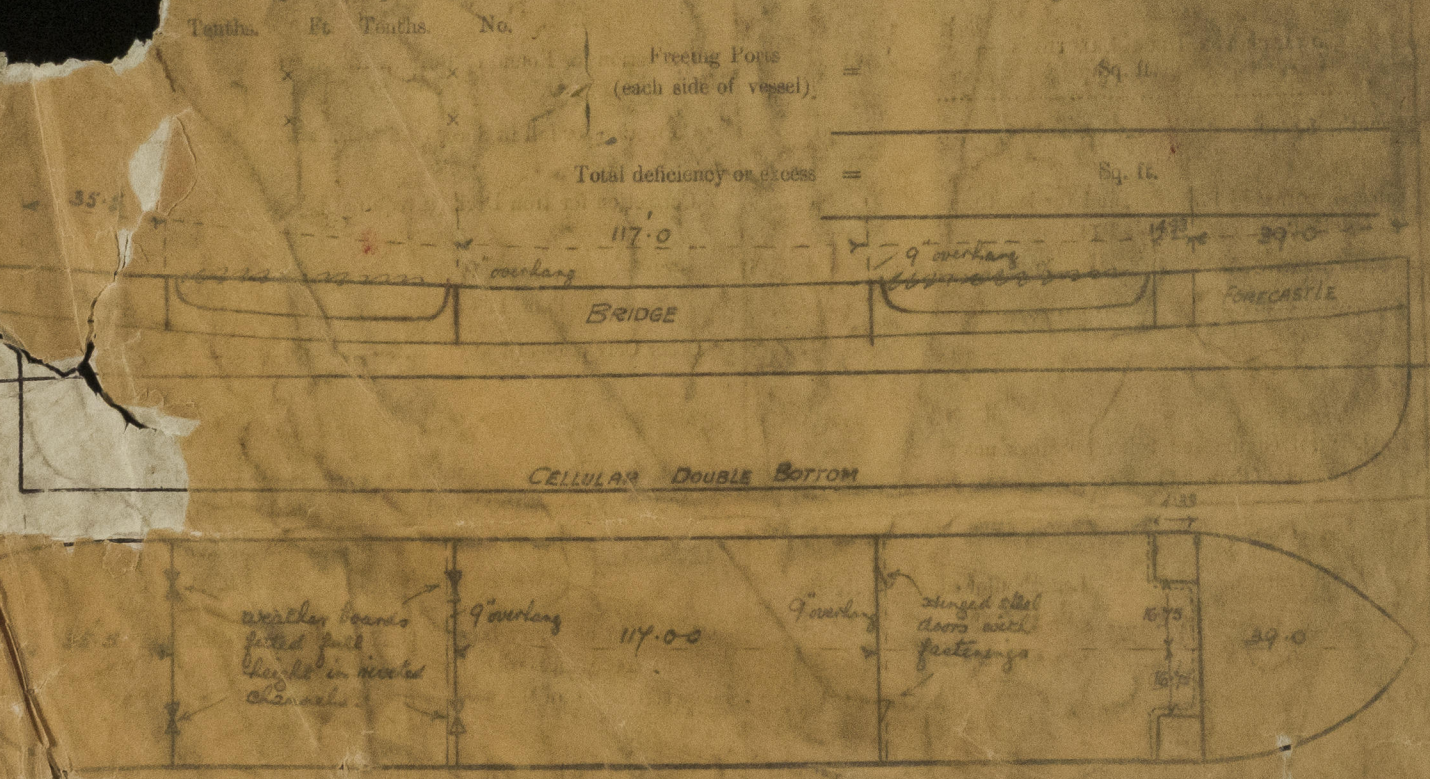 Tenths. Ft. Tenths. No.
× ×
Freeing Ports = Sq. ft.
(each side of vessel)
× ×
Total deficiency or excess = Sq. ft.
35.5
117.0 39.0
overhang 9" overhang
BRIDGE FORECASTLE
CELLULAR DOUBLE BOTTOM
weather boards
fitted full
height in riveted
channels.
9" overhang
117.00
9" overhang
hinged steel
doors with
fastenings
16.75
16.75
39.0